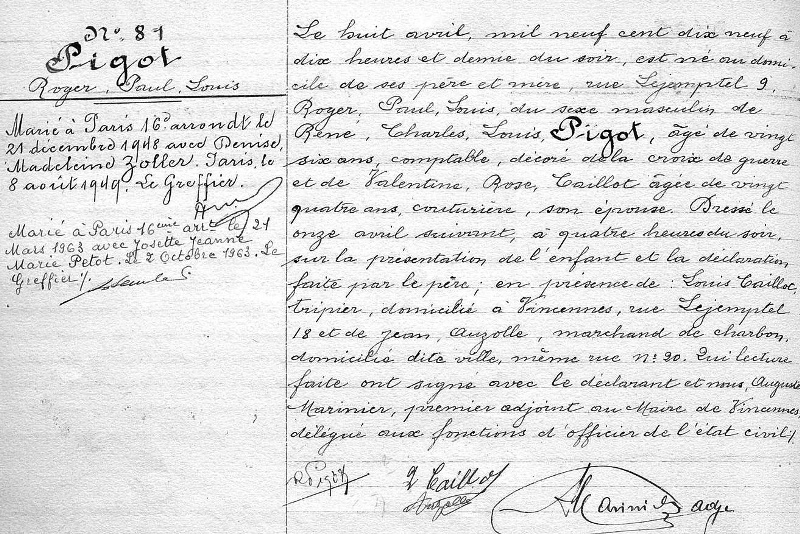 N° 81
Pigot
Roger, Paul, Louis
Marié à Paris 16e arrondt le
21 décembre 1948 avec Denise,
Madeleine Zoller. Paris, le
8 août 1949. Le Greffier.
Marié à Paris 16ème arrt le 21
Mars 1963 avec Josette Jeanne
Marie Petot. Le 2 Octobre 1963. Le
Greffier /.
Le huit avril, mil neuf cent dix neuf à
dix heures et demie du soir, est né au domi-
cile de ses père et mère, rue Lejemptel 9,
Roger, Paul, Louis, du sexe masculin de
René, Charles, Louis, Pigot, âgé de vingt
six ans, comptable, décoré de la croix de guerre
et de Valentine, Rose, Caillot âgée de vingt
quatre ans, couturière, son épouse. Dressé le
onze avril suivant, à quatre heures du soir,
sur la présentation de l'enfant et la déclaration
faite par le père; en présence de: Louis Caillot,
tripier, domicilié à Vincennes, rue Lejemptel
18 et de Jean, Auzolle, marchand de charbon,
domicilié dite ville, même rue n° 20. Qui lecture
faite ont signé avec le déclarant et nous, Auguste
Marinier, premier adjoint au Maire de Vincennes,
délégué aux fonctions d'officier de l'état civil /.
R Pigot
L Caillot
Auzolle
A Marinier adj